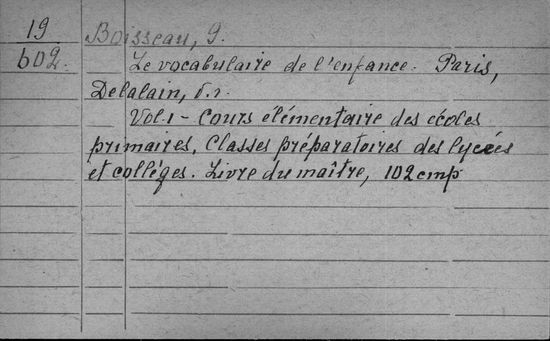 19 Boisseau, G.
602. Le vocabulaire de l'enfance. Paris,
Delalain, б.г.
Vol. 1 - Cours élémentaire des écoles
primaires, Classes préparatoires des lycées
et collèges. Livre du maître, 102 стр